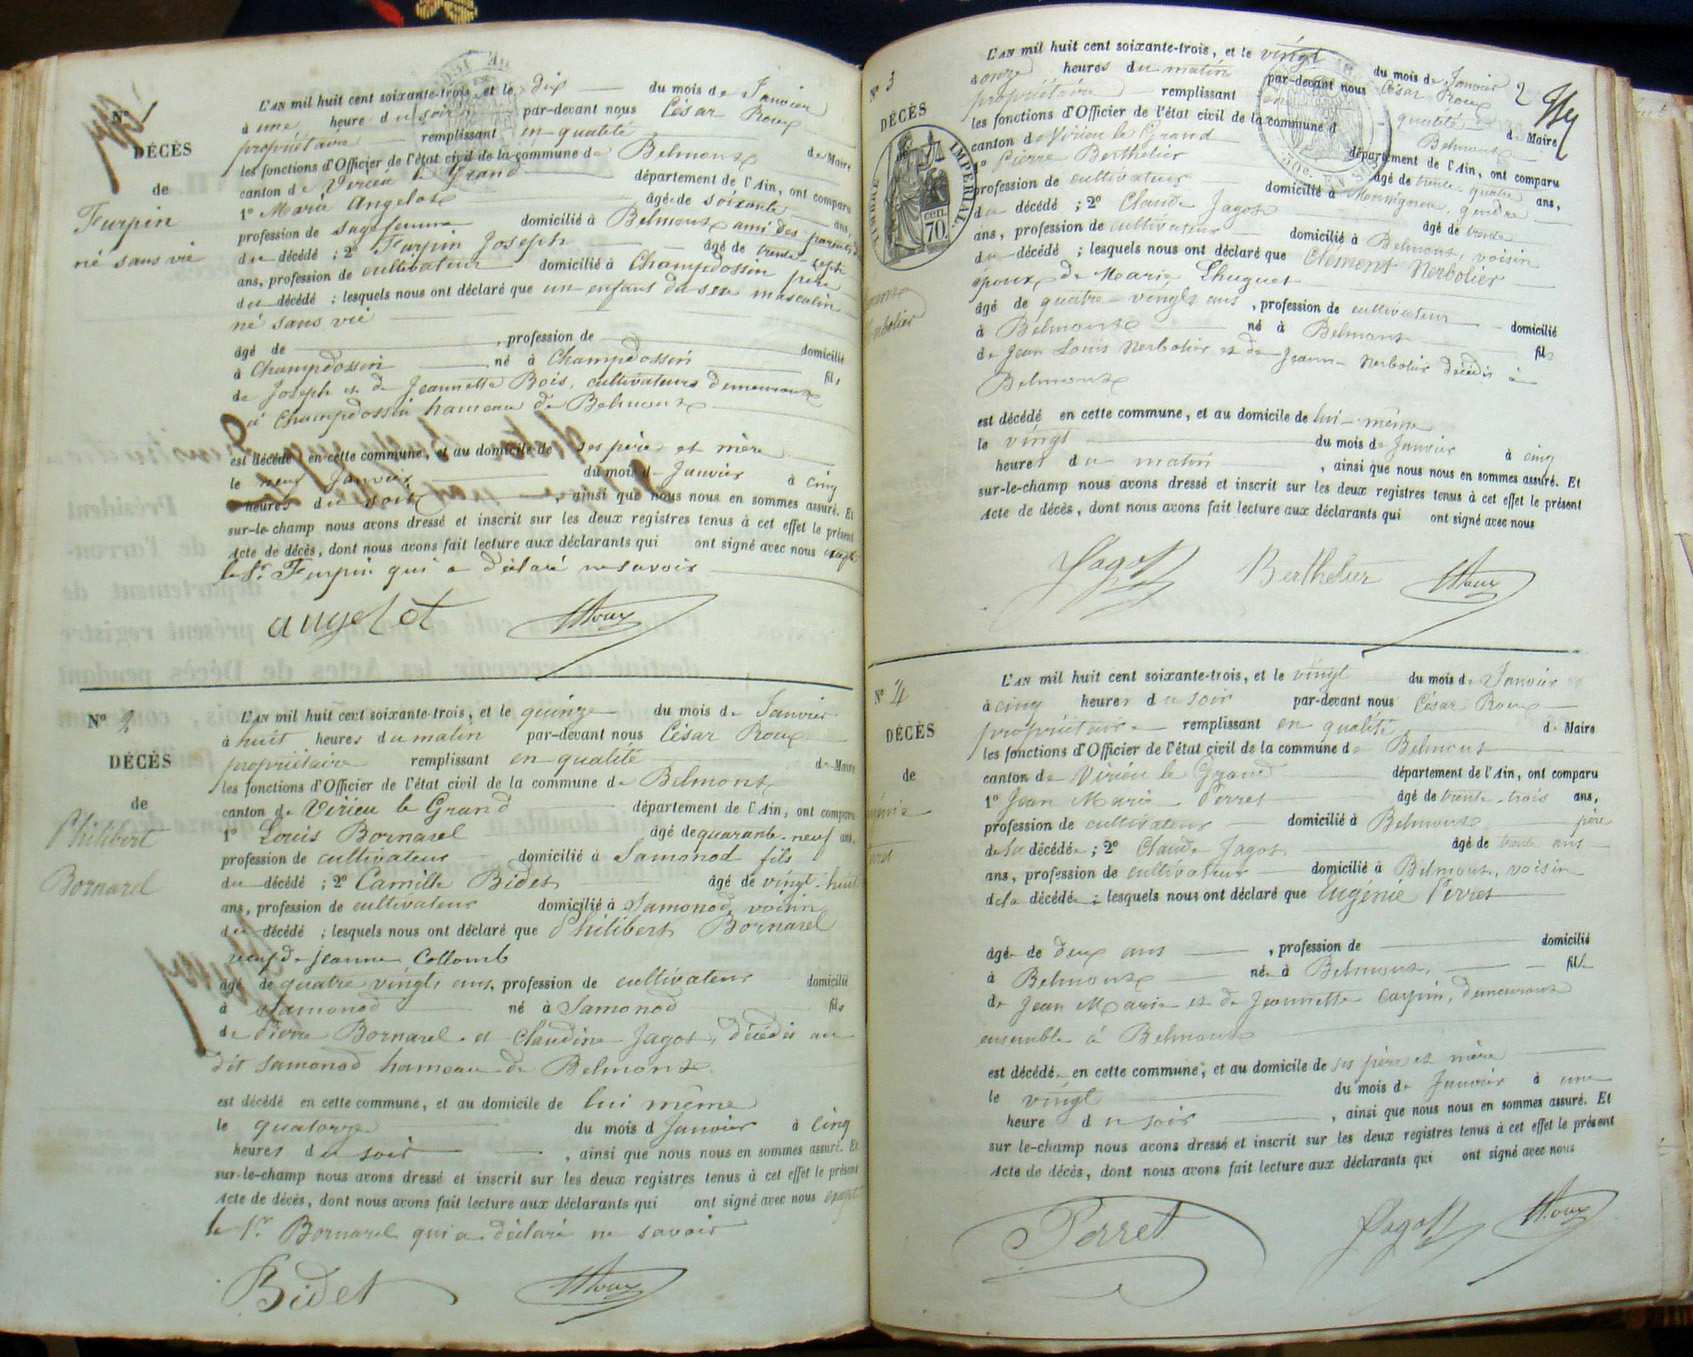 N° 1
DÉCÈS
de
Furpin
né sans vie
L'AN mil huit cent soixante-trois, et le dix du mois de Janvier
à une heure du soir par-devant nous César Roux
propriétaire remplissant en qualité de Maire
les fonctions d'Officier de l'état civil de la commune de Belmont
canton de Virieu le Grand département de l'Ain, ont comparu
1° Marie Angelot âgée de soixante ans,
profession de sage femme domicilié à Belmont ami des parents
du décédé ; 2° Furpin Joseph âgé de trente sept
ans, profession de cultivateur domicilié à Champdossin père
du décédé ; lesquels nous ont déclaré que un enfant du sexe masculin
né sans vie
âgé de , profession de domicilié
à Champdossin né à Champdossin fils
de Joseph et de Jeannette Bois, cultivateurs demeurant
à Champdossin hameau de Belmont
est décédé en cette commune, et au domicile de ses père et mère
le neuf Janvier du mois d Janvier à cinq
heures du soir , ainsi que nous nous en sommes assuré. Et
sur-le-champ nous avons dressé et inscrit sur les deux registres tenus à cet effet le présent
Acte de décès, dont nous avons fait lecture aux déclarants qui ont signé avec nous excepté
le Sr. Furpin qui a déclaré ne savoir
angelot Roux
N° 2
DÉCÈS
de
Philibert
Bornarel
L'AN mil huit cent soixante-trois, et le quinze du mois de Janvier
à huit heures du matin par-devant nous César Roux
propriétaire remplissant en qualité de Maire
les fonctions d'Officier de l'état civil de la commune de Belmont
canton de Virieu le Grand département de l'Ain, ont comparu
1° Louis Bornarel âgé de quarante-neuf ans,
profession de cultivateur domicilié à Samonod fils
du décédé ; 2° Camille Bidet âgé de vingt-huit
ans, profession de cultivateur domicilié à Samonod, voisin
du décédé ; lesquels nous ont déclaré que Philibert Bornarel
veuf de Jeanne Collomb
âgé de quatre vingts ans, profession de cultivateur domicilié
à Samonod né à Samonod fils
de Pierre Bornarel et Claudine Jagot, décédés au
dit Samonod hameau de Belmont
est décédé en cette commune, et au domicile de lui même
le quatorze du mois d Janvier à cinq
heures du soir , ainsi que nous nous en sommes assuré. Et
sur-le-champ nous avons dressé et inscrit sur les deux registres tenus à cet effet le présent
Acte de décès, dont nous avons fait lecture aux déclarants qui ont signé avec nous excepté
le Sr. Bornarel qui a déclaré ne savoir
Bidet Roux
2
N° 3
DÉCÈS
TIMBRE IMPÉRIAL
70 cen.
L'AN mil huit cent soixante-trois, et le vingt du mois de Janvier
à onze heures du matin par-devant nous César Roux
propriétaire remplissant en qualité de Maire
les fonctions d'Officier de l'état civil de la commune d Belmont
canton de Virieu le Grand département de l'Ain, ont comparu
1° Pierre Berthelier âgé de trente quatre ans,
profession de cultivateur domicilié à gendre
du décédé ; 2° Claude Jagot âgé de trente
ans, profession de cultivateur domicilié à Belmont, voisin
du décédé ; lesquels nous ont déclaré que Clément Nerbolier
époux de Marie Thuguet
âgé de quatre-vingts ans , profession de cultivateur domicilié
à Belmont né à Belmont fils
de Jean Louis Nerbolier et de Jeanne Nerbolier décédés à
Belmont
est décédé en cette commune, et au domicile de lui-même
le vingt du mois de Janvier à cinq
heures du matin , ainsi que nous nous en sommes assuré. Et
sur-le-champ nous avons dressé et inscrit sur les deux registres tenus à cet effet le présent
Acte de décès, dont nous avons fait lecture aux déclarants qui ont signé avec nous
Jagot Berthelier Roux
N° 4
DÉCÈS
de
L'AN mil huit cent soixante-trois, et le vingt du mois de Janvier
à cinq heures du soir par-devant nous César Roux
propriétaire remplissant en qualité de Maire
les fonctions d'Officier de l'état civil de la commune de Belmont
canton de Virieu le Grand département de l'Ain, ont comparu
1° Jean Marie Perret âgé de trente-trois ans,
profession de cultivateur domicilié à Belmont père
de la décédée ; 2° Claude Jagot âgé de trente ans
ans, profession de cultivateur domicilié à Belmont, voisin
de la décédée ; lesquels nous ont déclaré que Eugénie Perret
âgée de deux ans , profession de domicilié
à Belmont née à Belmont, fille
de Jean Marie et de Jeannette Carpin, demeurant
ensemble à Belmont
est décédée en cette commune, et au domicile de ses père et mère
le vingt du mois de Janvier à une
heure du soir , ainsi que nous nous en sommes assuré. Et
sur-le-champ nous avons dressé et inscrit sur les deux registres tenus à cet effet le présent
Acte de décès, dont nous avons fait lecture aux déclarants qui ont signé avec nous
Perret Jagot Roux